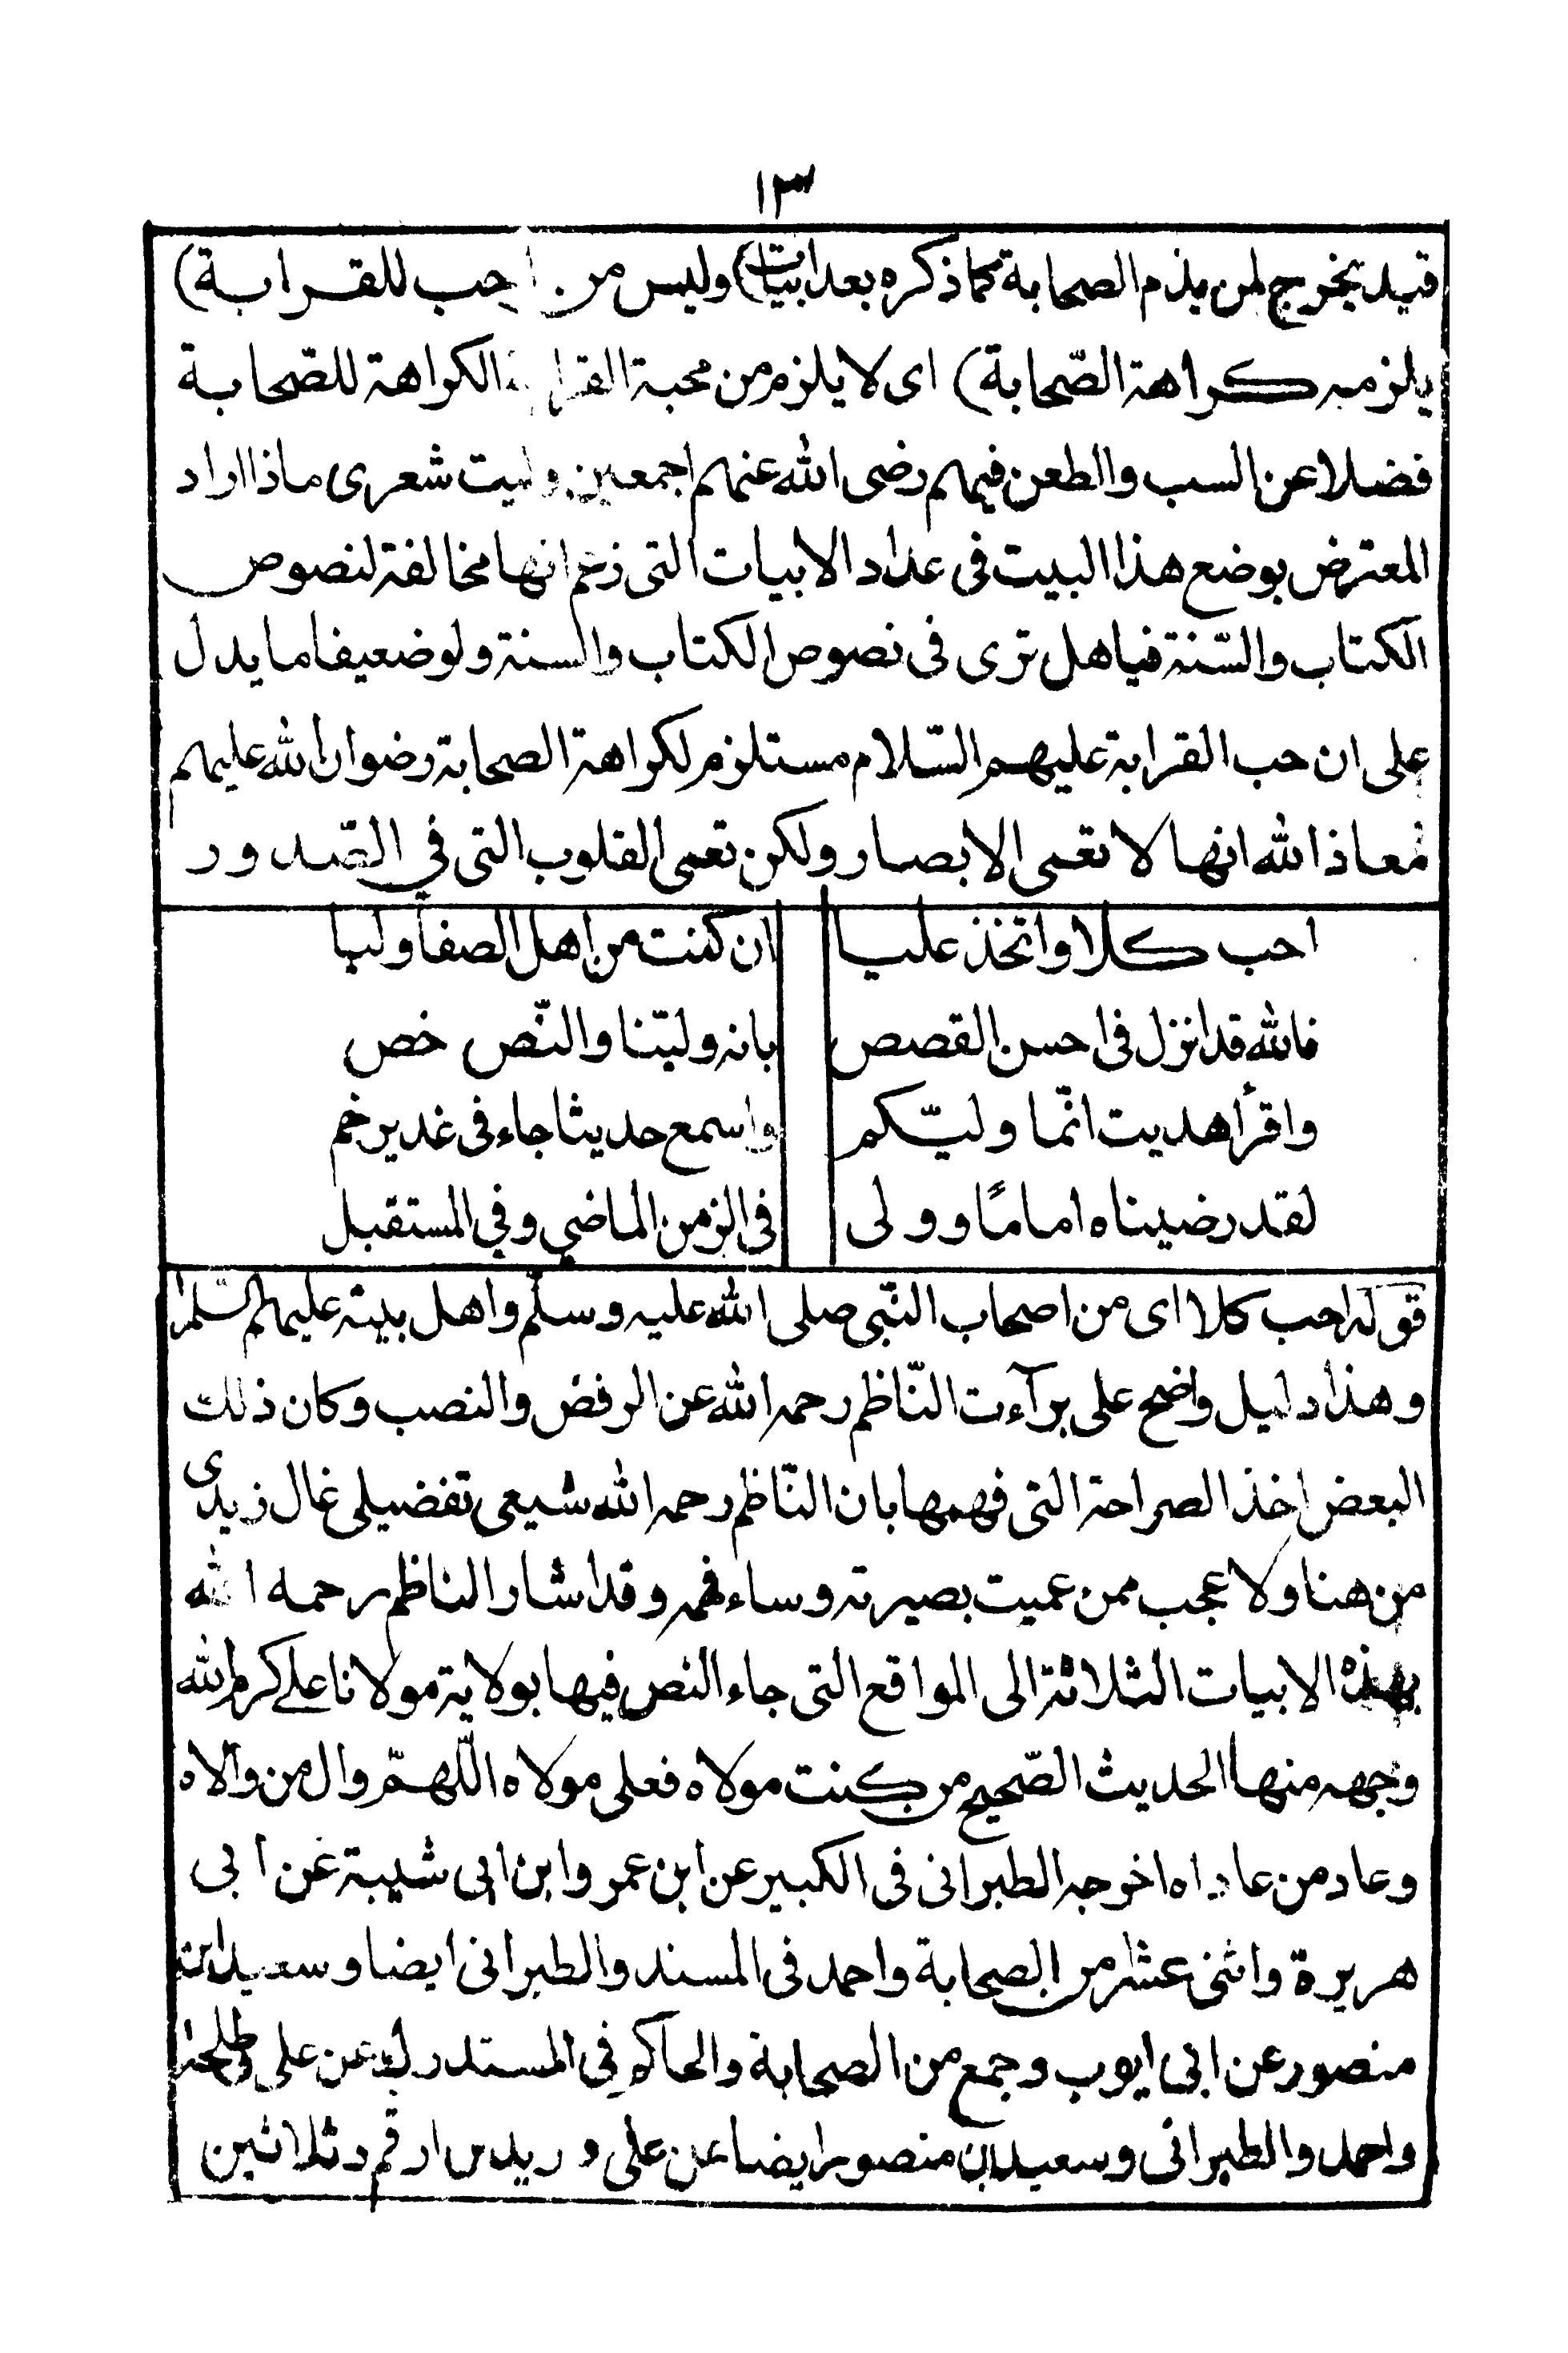 ١٣
قيد يخرج لمن يذم الصحابة كما ذكره بعد ابيات) وليس من احب للقرابة)
يلزمه كراهة الصّحابة) اى لا يلزم من محبة القرابة الكراهة للصّحابة
فضلا عن السب والطعن فيهم رضى الله عنهم اجمعين وليت شعرى ماذا اراد
المعترض بوضع هذا البيت فى عداد الابيات التى زعم انها مخالفة لنصوص
الكتاب والسّنة فيا هل ترى فى نصوص الكتاب والسنة ولو ضعيفا ما يدل
على ان حب القرابة عليهم السّلام مستلزم لكراهة الصحابة رضوان الله عليهم
معاذ الله انها لا تعمى الابصار ولكن تعمى القلوب التى في الصّدور
احب كلا واتخذ عليا ان كنت من اهل الصفا وليا
فالله قد انزل فى احسن القصص بانه وليّنا والنّص خص
واقرأ هديت انّما وليّكم واسمع حديثا جاء فى غدير خم
لقد رضيناه امامًا وولى فى الزمن الماضي وفي المستقبل
قوله احب كلا اى من اصحاب النّبى صلى الله عليه وسلّم واهل بيته عليهم السّلام
وهذا دليل واضح على برآءت النّاظم رحمه الله عن الرفض والنصب وكان ذلك
البعض اخذ الصراحة التى فهمها بان النّاظم رحمه الله شيعى تفضيلى غال زيدى
من هنا ولا عجب ممن عميت بصيرته وساء فهمه وقد اشار الناظم رحمه الله
بهذه الابيات الثلاثة الى المواقع التى جاء النص فيها بولاية مولانا على كرم الله
وجهه منها الحديث الصّحيح من كنت مولاه فعلى مولاه اللّهمّ وال من والاه
وعاد من عاداه اخرجه الطبرانى فى الكبير عن ابن عمر وابن ابى شيبة عن ابى
هريرة واثنى عشر من الصحابة واحمد فى المسند والطبرانى ايضا وسعيد ابن
منصور عن ابى ايوب وجمع من الصحابة والحاكم فى المستدرك عن على وطلحة
واحمد والطبرانى وسعيد ابن منصور ايضا عن على وزيد بن ارقم وثلاثين